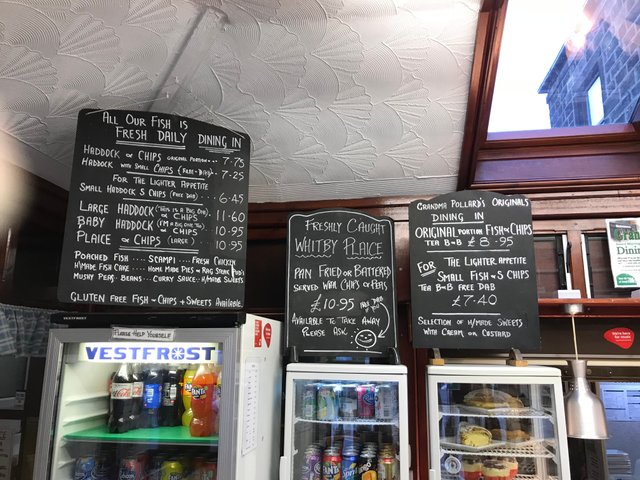 ALL OUR FISH IS
FRESH DAILY DINING IN
HADDOCK & CHIPS ORIGINAL PORTION... 7.75
HADDOCK WITH SMALL CHIPS 7.25
FOR THE LIGHTER APPETITE
SMALL HADDOCK S CHIPS (FREE DAB) 6.45
LARGE HADDOCK (THIS IS A BIG ONE) & CHIPS 11.60
BABY HADDOCK (I'M A BIG ONE TOO) & CHIPS 10.95
PLAICE & CHIPS (LARGE) 10.95
POACHED FISH.... SCAMPI.... FRESH CHICKEN
H/MADE FISH CAKE.... HOME MADE PIES & RAG
MUSHY PEAS BEANS... CURRY SAUCE.. H/MADE SWEETS
GLUTEN FREE FISH & CHIPS & SWEETS AVAILABLE
FRESHLY CAUGHT
WHITBY PLAICE
PAN FRIED OR BATTERED
SERVED WITH CHIPS & PEAS
£10.95
AVAILABLE TO TAKE AWAY
PLEASE ASK
GRANDMA POLLARD'S ORIGINALS
DINING IN
ORIGINAL PORTION FISH & CHIPS
TEA B&B £8.95
FOR THE LIGHTER APPETITE
SMALL FISH & S CHIPS
TEA B&B FREE DAB
£7.40
SELECTION OF H/MADE SWEETS
WITH CREAM OR CUSTARD
PLEASE HELP YOURSELF
VESTFROST
Dinin